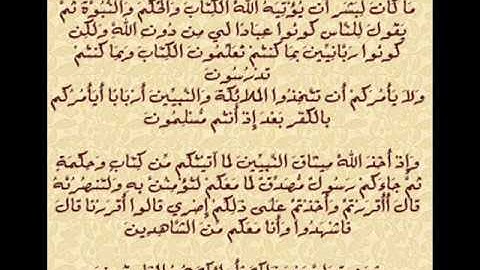 مَا كَانَ لِبَشَرٍ أَن يُؤْتِيَهُ اللَّهُ الْكِتَابَ وَالْحُكْمَ وَالنُّبُوَّةَ ثُمَّ
يَقُولَ لِلنَّاسِ كُونُوا عِبَادًا لِّي مِن دُونِ اللَّهِ وَلَٰكِن
كُونُوا رَبَّانِيِّينَ بِمَا كُنتُمْ تُعَلِّمُونَ الْكِتَابَ وَبِمَا كُنتُمْ
تَدْرُسُونَ
وَلَا يَأْمُرَكُمْ أَن تَتَّخِذُوا الْمَلَائِكَةَ وَالنَّبِيِّينَ أَرْبَابًا أَيَأْمُرُكُم
بِالْكُفْرِ بَعْدَ إِذْ أَنتُم مُّسْلِمُونَ
وَإِذْ أَخَذَ اللَّهُ مِيثَاقَ النَّبِيِّينَ لَمَا آتَيْتُكُم مِّن كِتَابٍ وَحِكْمَةٍ
ثُمَّ جَاءَكُمْ رَسُولٌ مُّصَدِّقٌ لِّمَا مَعَكُمْ لَتُؤْمِنُنَّ بِهِ وَلَتَنصُرُنَّهُ
قَالَ أَأَقْرَرْتُمْ وَأَخَذْتُمْ عَلَىٰ ذَٰلِكُمْ إِصْرِي قَالُوا أَقْرَرْنَا قَالَ
فَاشْهَدُوا وَأَنَا مَعَكُم مِّنَ الشَّاهِدِينَ